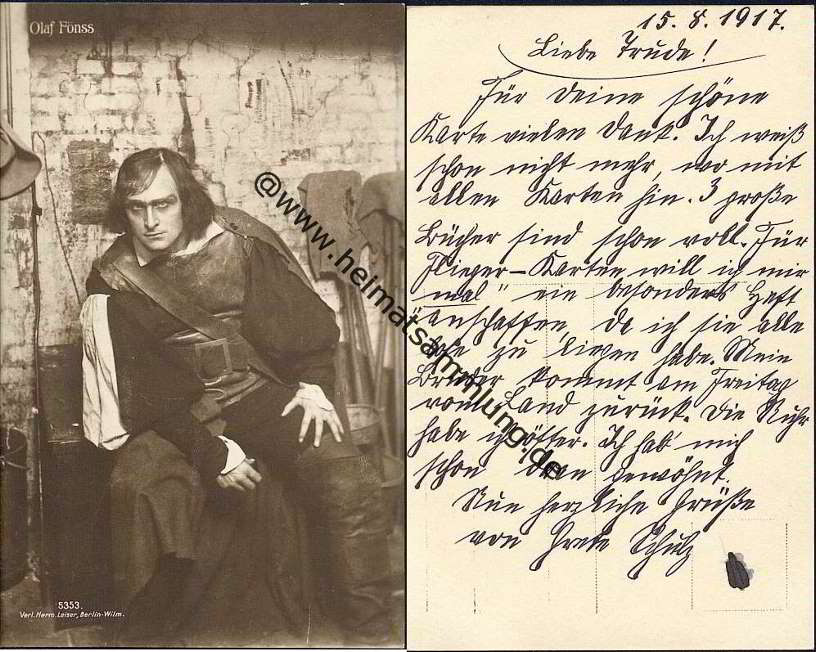 Olaf Fönss
5353.
Verl. Herm. Leiser, Berlin-Wilm.
@www.heimatsammlung.de
15. 8. 1917.
Liebe Trude!
Für deine schöne
Karte vielen Dank. Ich weiß
schon nicht mehr, wo mit
allen Karten hin. 3 große
Bücher sind schon voll. Für
Flieger-Karten will ich mir
"mal" ein besonders Heft
anschaffen, da ich sie alle
zu liegen habe. Mein
Bruder kommt am Freitag
vom Land zurück. Die Ruhr
habe ich öfter. Ich hab mich
schon dran gewöhnt.
Nun herzliche Grüße
von Grete Schulz